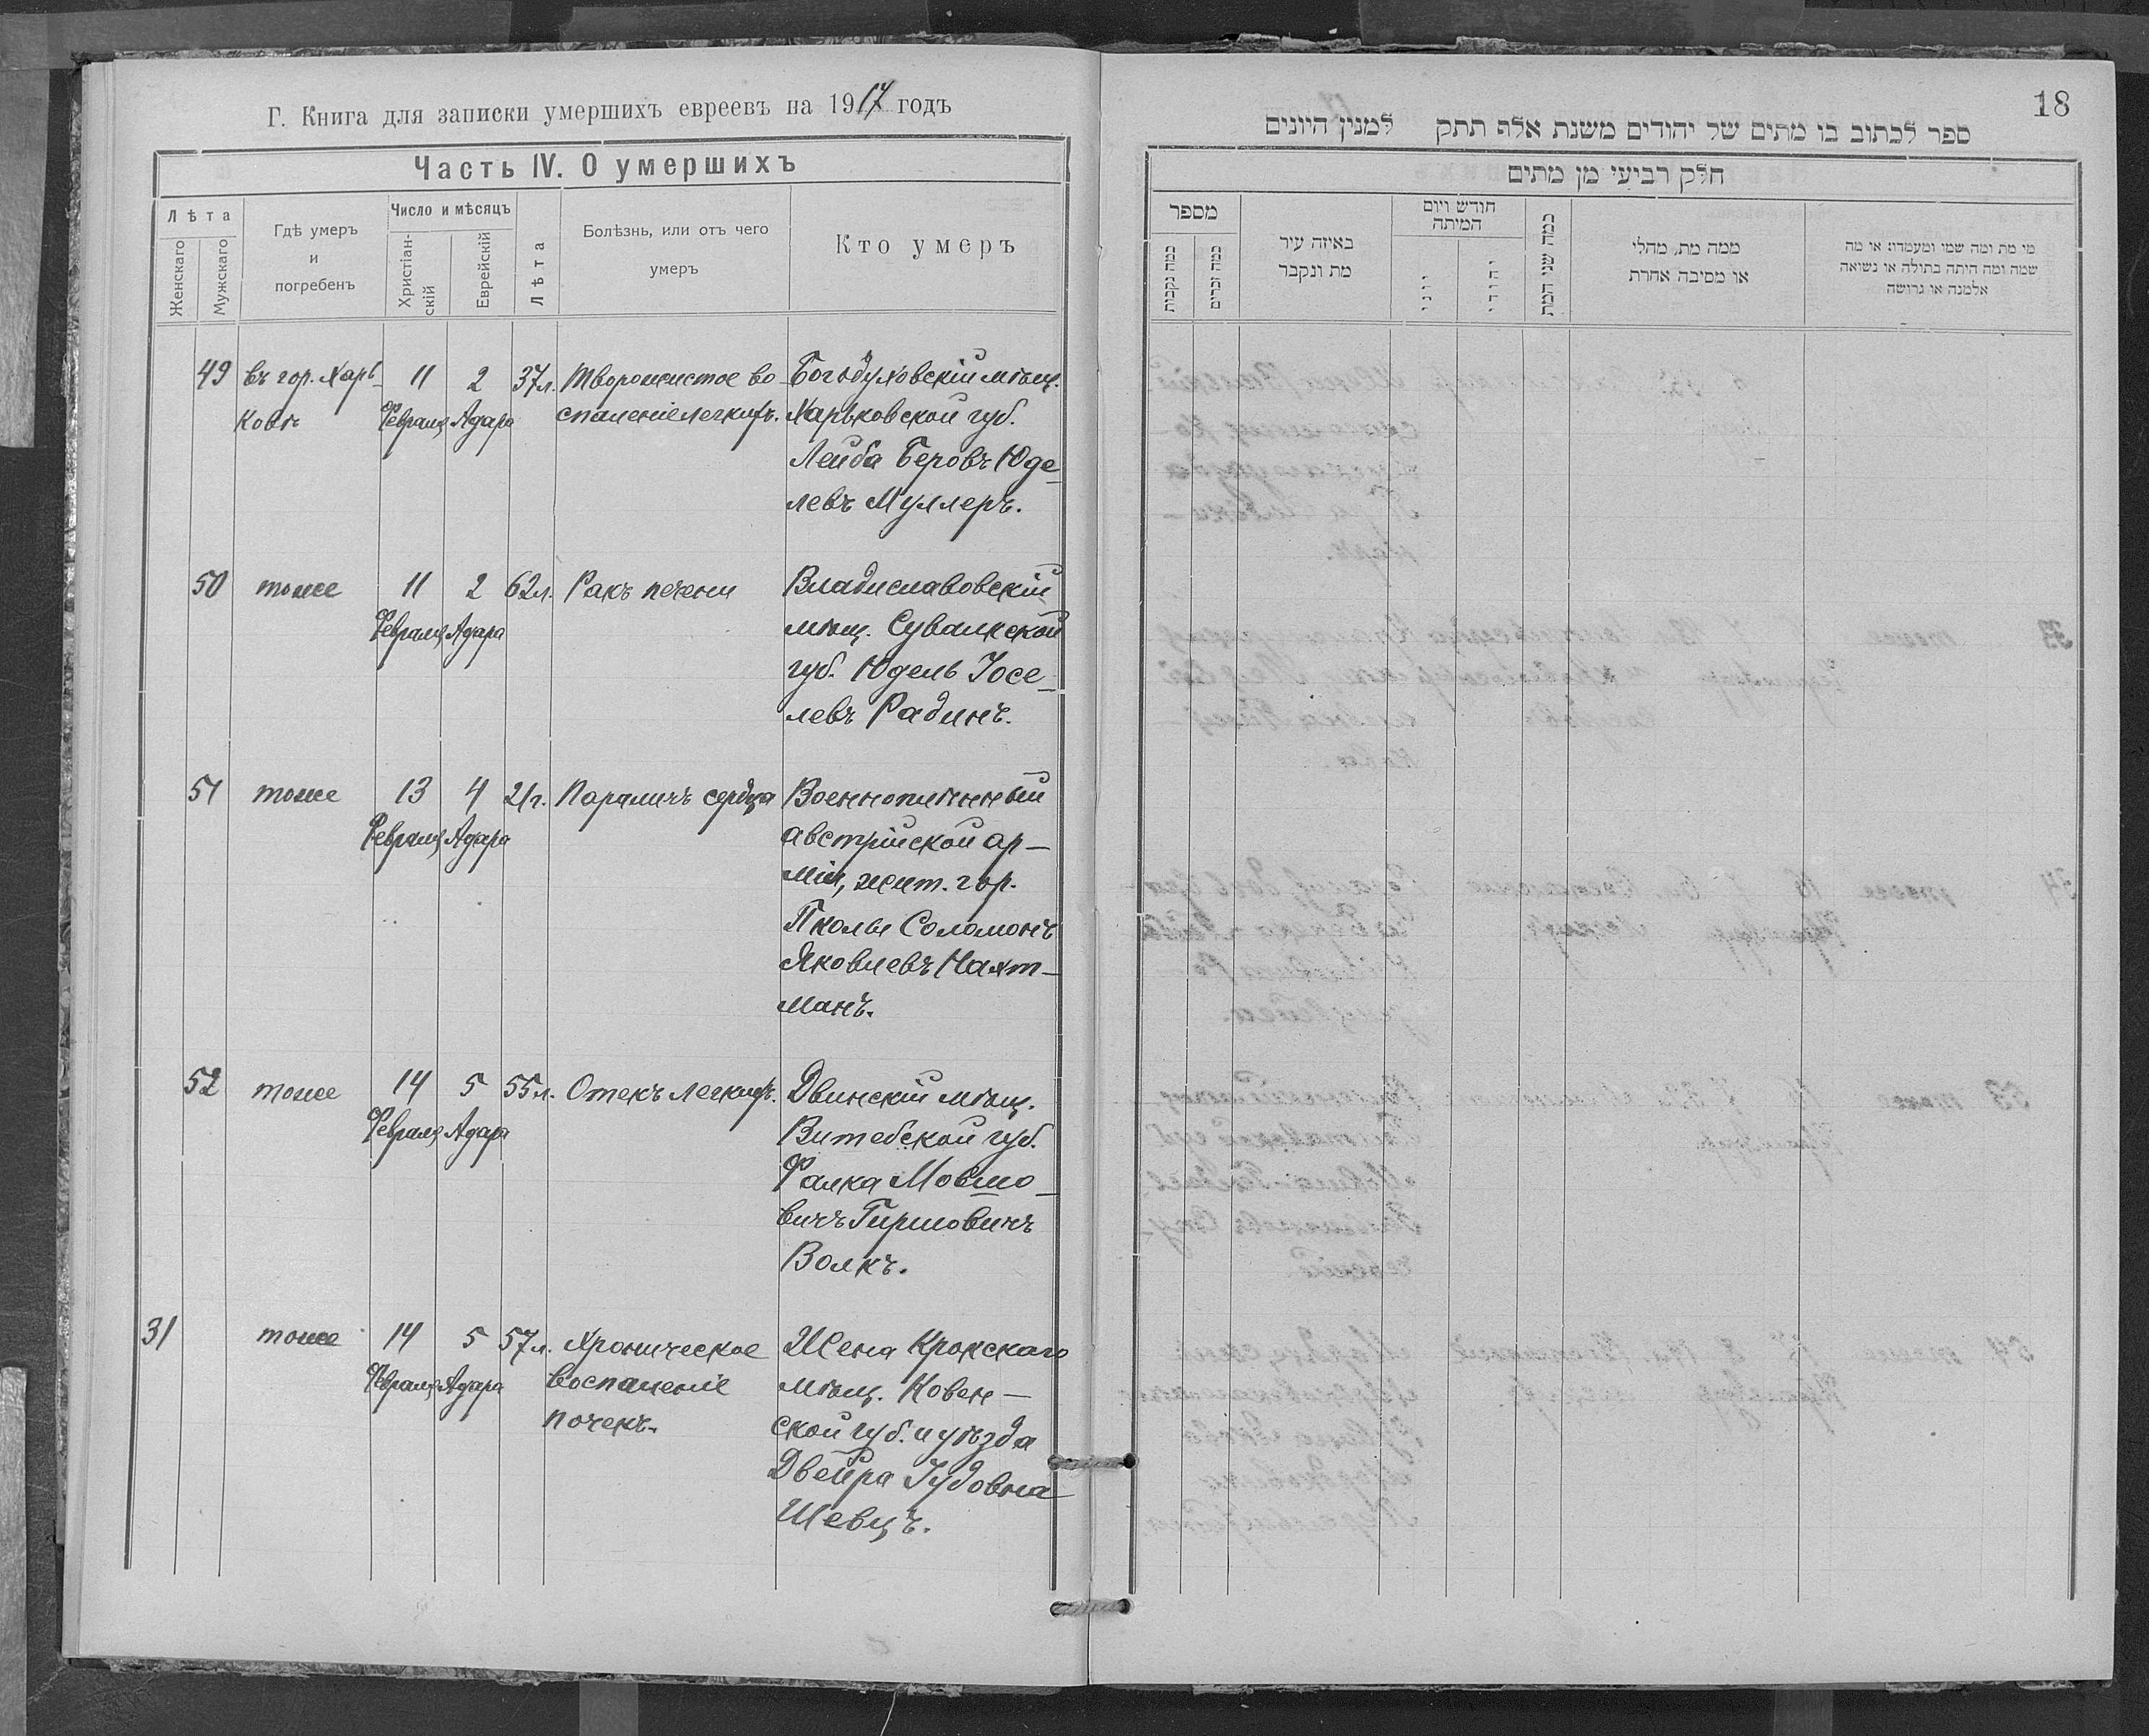 Г. Книга для записки умершихъ евреевъ на 1917 годъ
Часть IV. О умершихъ
Лѣта
Женскаго
Мужскаго
Гдѣ умеръ
и
погребенъ
Число и мѣсяцъ
Христіан-
скій
Еврейскій
Лѣта
Болѣзнь, или отъ чего
умеръ
Кто умеръ
49 въ гор. Харь- 11 2 37л. Творожистое во- Богодуховскій мѣщ.
ковѣ Февраля Адара спаленіе легкихъ. Харьковской губ.
Лейба Беровъ Юде-
левъ Муллеръ.
50 тоже 11 2 62л. Ракъ печени Владиславовскій
Февраля Адара мѣщ. Сувалкской
губ. Юдель Іосе-
левъ Радинъ.
51 тоже 13 4 21г. Параличъ сердца Военноплѣнный
Февраля Адара австрійской ар-
міи, жит. гор.
Пколы Соломонъ
Яковлевъ Нахт-
манъ.
52 тоже 14 5 55л. Отекъ легкихъ. Двинскій мѣщ.
Февраля Адара Витебской губ.
Фалка Мовшо-
вичъ Гиршовичъ
Волкъ.
31 тоже 14 5 57л. Хроническое Жена Крокскаго
Февраля Адара воспаленіе мѣщ. Ковен-
почекъ. ской губ. и уѣзда
Двейра Іудовна
Шевцъ.
18
ספר לכתוב בו מתים של יהודים משנת אלף תתק למנין היונים
חלק רביעי מן מתים
מספר
כמה נקבות
כמה זכרים
באיזה עיר
מת ונקבר
חודש ויום
המיתה
יוני
יהודי
כמה שני המת
ממה מת, מחלי
או מסיבה אחרת
מי מת ומה שמו ומעמדו: או מה
שמה ומה היתה בתולה או נשואה
אלמנה או גרושה